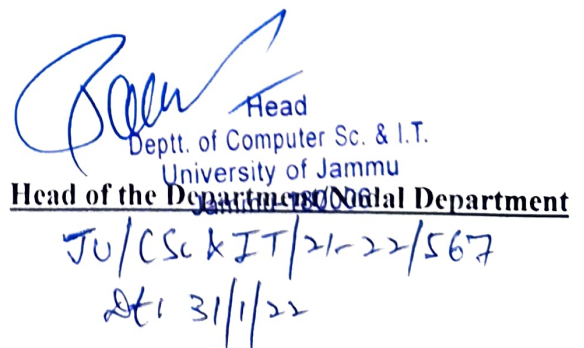 Head
Deptt. of Computer Sc. & I.T.
University of Jammu
Jammu-180006
Head of the Department/Nodal Department
JU/CSc & IT/21-22/567
Dt: 31/1/22